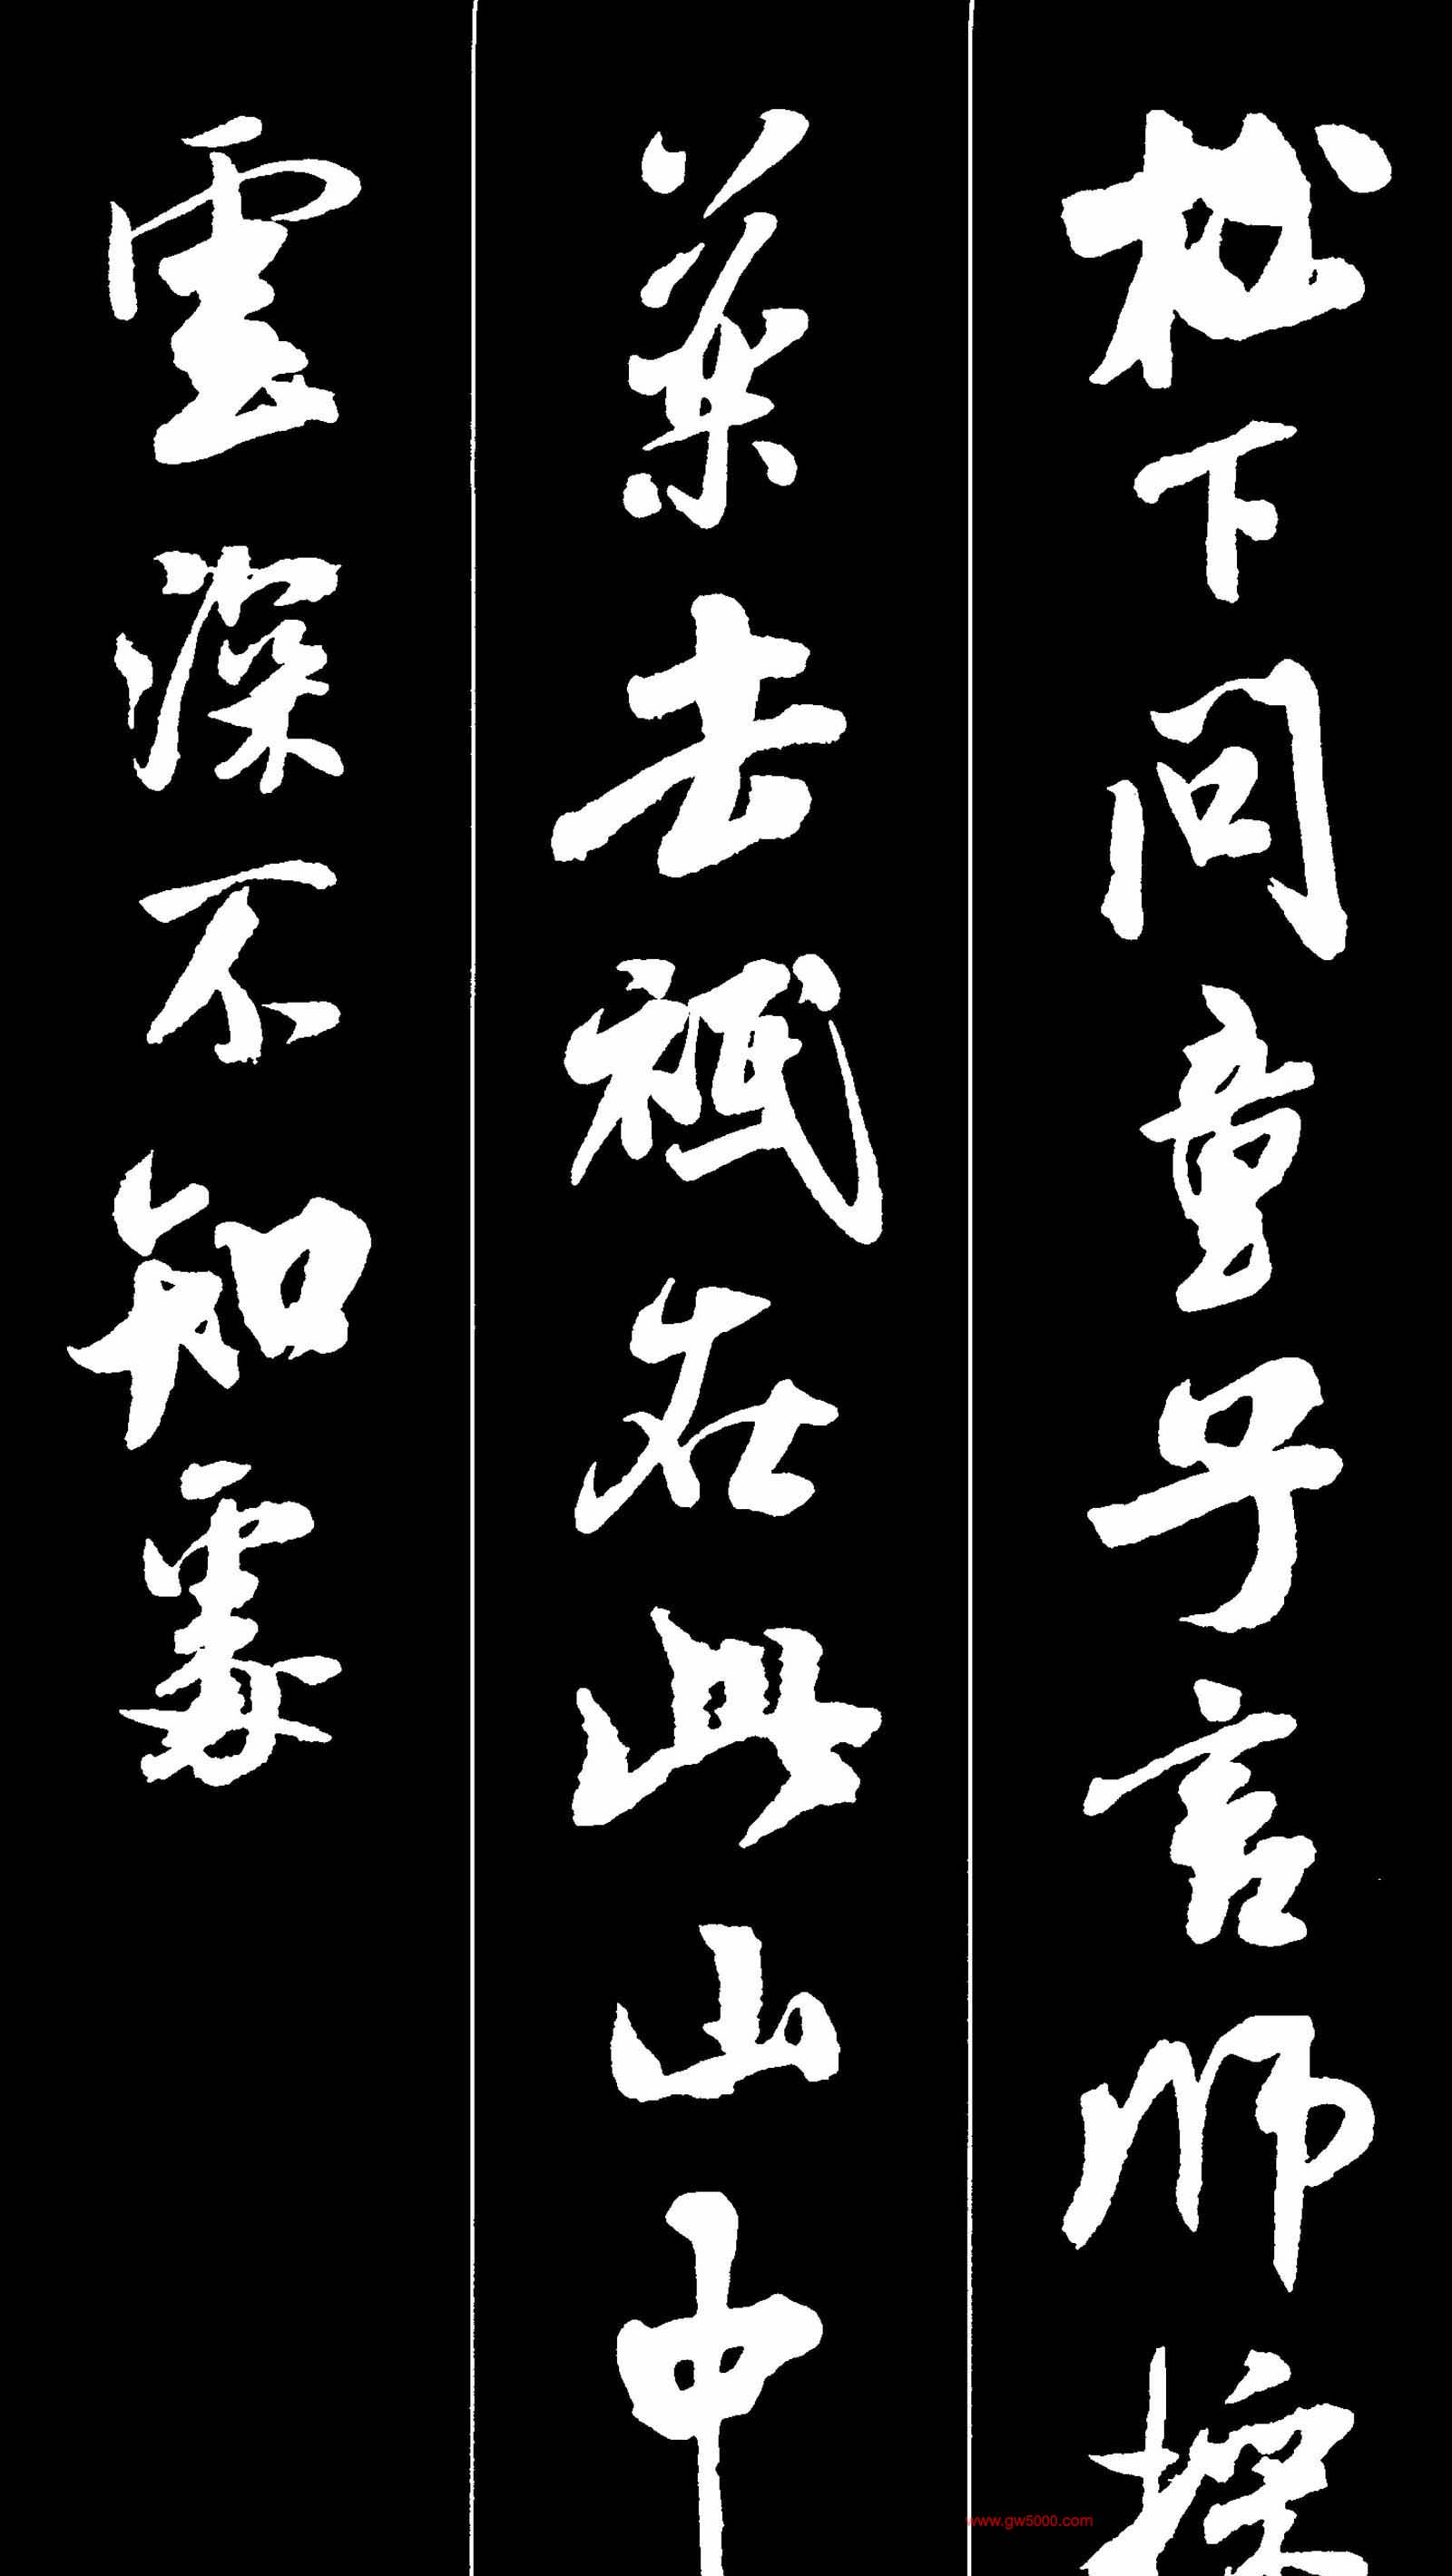 松下問童子言師採
藥去祇在此山中
雲深不知處
www.gw5000.com